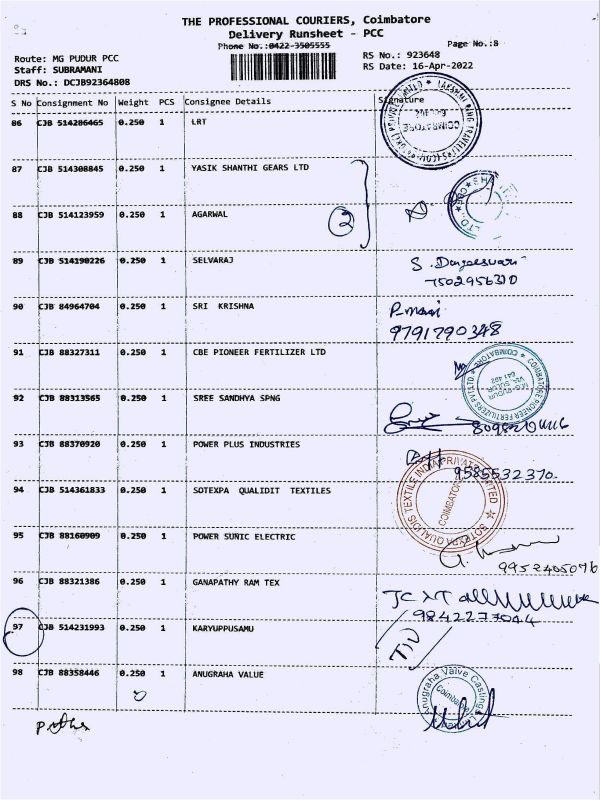 THE PROFESSIONAL COURIERS, Coimbatore
Delivery Runsheet - PCC
Phone No.:0422-3505555
Page No.:8
Route: MG PUDUR PCC
RS No.: 923648
Staff: SUBRAMANI
RS Date: 16-Apr-2022
DRS No.: DCJB92364808
S No Consignment No Weight PCS Consignee Details Signature
86 CJB 514286465 0.250 1 LRT
COIMBATORE
87 CJB 514308845 0.250 1 YASIK SHANTHI GEARS LTD
88 CJB 514123959 0.250 1 AGARWAL
2
89 CJB 514190226 0.250 1 SELVARAJ
7502956310
90 CJB 84964704 0.250 1 SRI KRISHNA
P. mani
9791790348
91 CJB 88327311 0.250 1 CBE PIONEER FERTILIZER LTD
COIMBATORE PIONEER FERTILIZERS PVT LTD
COIMBATORE
92 CJB 88313565 0.250 1 SREE SANDHYA SPNG
93 CJB 88370920 0.250 1 POWER PLUS INDUSTRIES
9585532370
94 CJB 514361833 0.250 1 SOTEXPA QUALIDIT TEXTILES
SOTEXPA QUALIDIS TEXTILE INDIA PRIVATE LIMITED
COIMBATORE
95 CJB 88160909 0.250 1 POWER SUNIC ELECTRIC
9952405076
96 CJB 88321386 0.250 1 GANAPATHY RAM TEX
9842277044
97 CJB 514231993 0.250 1 KARYUPPUSAMU
98 CJB 88358446 0.250 1 ANUGRAHA VALUE
Anugraha Valve Castings
Coimbatore